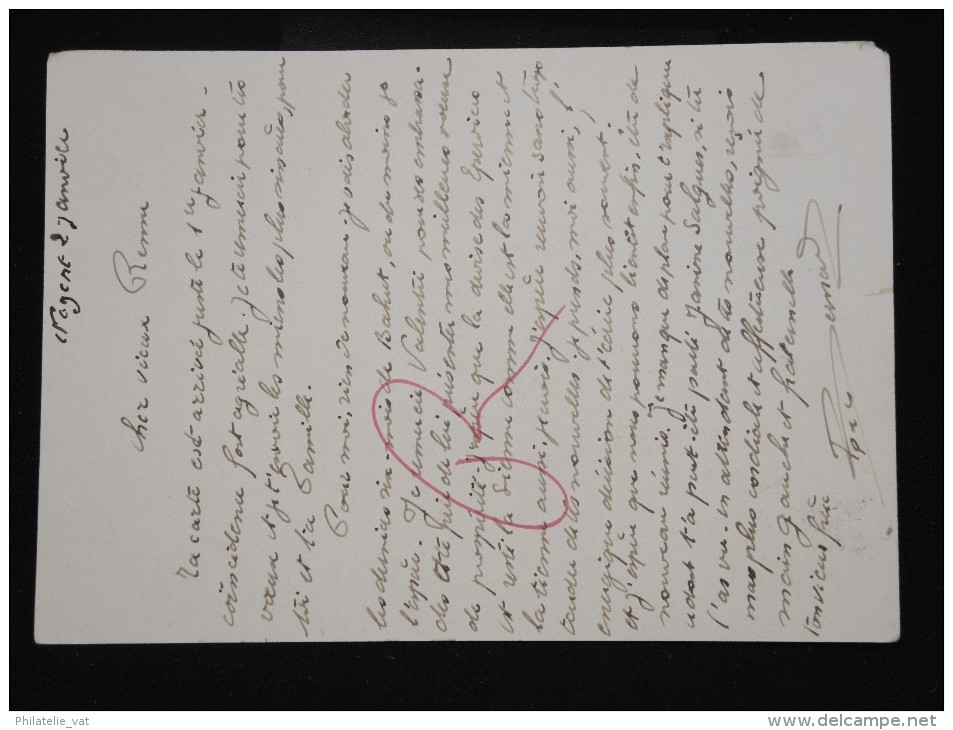 Nogent 2 Janvier
Cher vieux Pierre
Ta carte est arrivée juste le 1er Janvier -
coïncidence fort agréable. Je te remercie pour tes
voeux et j'espère les miens les plus sincères, pour
toi et ta famille.
Pour moi, rien de nouveau, je suis dans
les derniers six mois de Bahut, ou du moins je
l'espère. Je remercie Valentin pour ses
de son côté prie de lui présenter mes meilleurs voeux
de prospérité que la devise des
et reste la sienne comme elle est la mienne et
la tienne aussi je crois, j'espère revoir sans trop
tarder de tes nouvelles, je prends, moi aussi, l'
énergique décision de t'écrire plus souvent.
et j'espère que nous pourrons bientôt enfin, être de
nouveau réunis. Je manque de place pour t'expliquer
ce dont t'a peut-être parlé Janine Salgues, si tu
l'as vue. en attendant de tes nouvelles, reçois
ma plus cordiale et affectueuse poignée de
main gauche et fraternelle
Ton vieux frère
Bernard
Philatelie_vat
www.delcampe.net